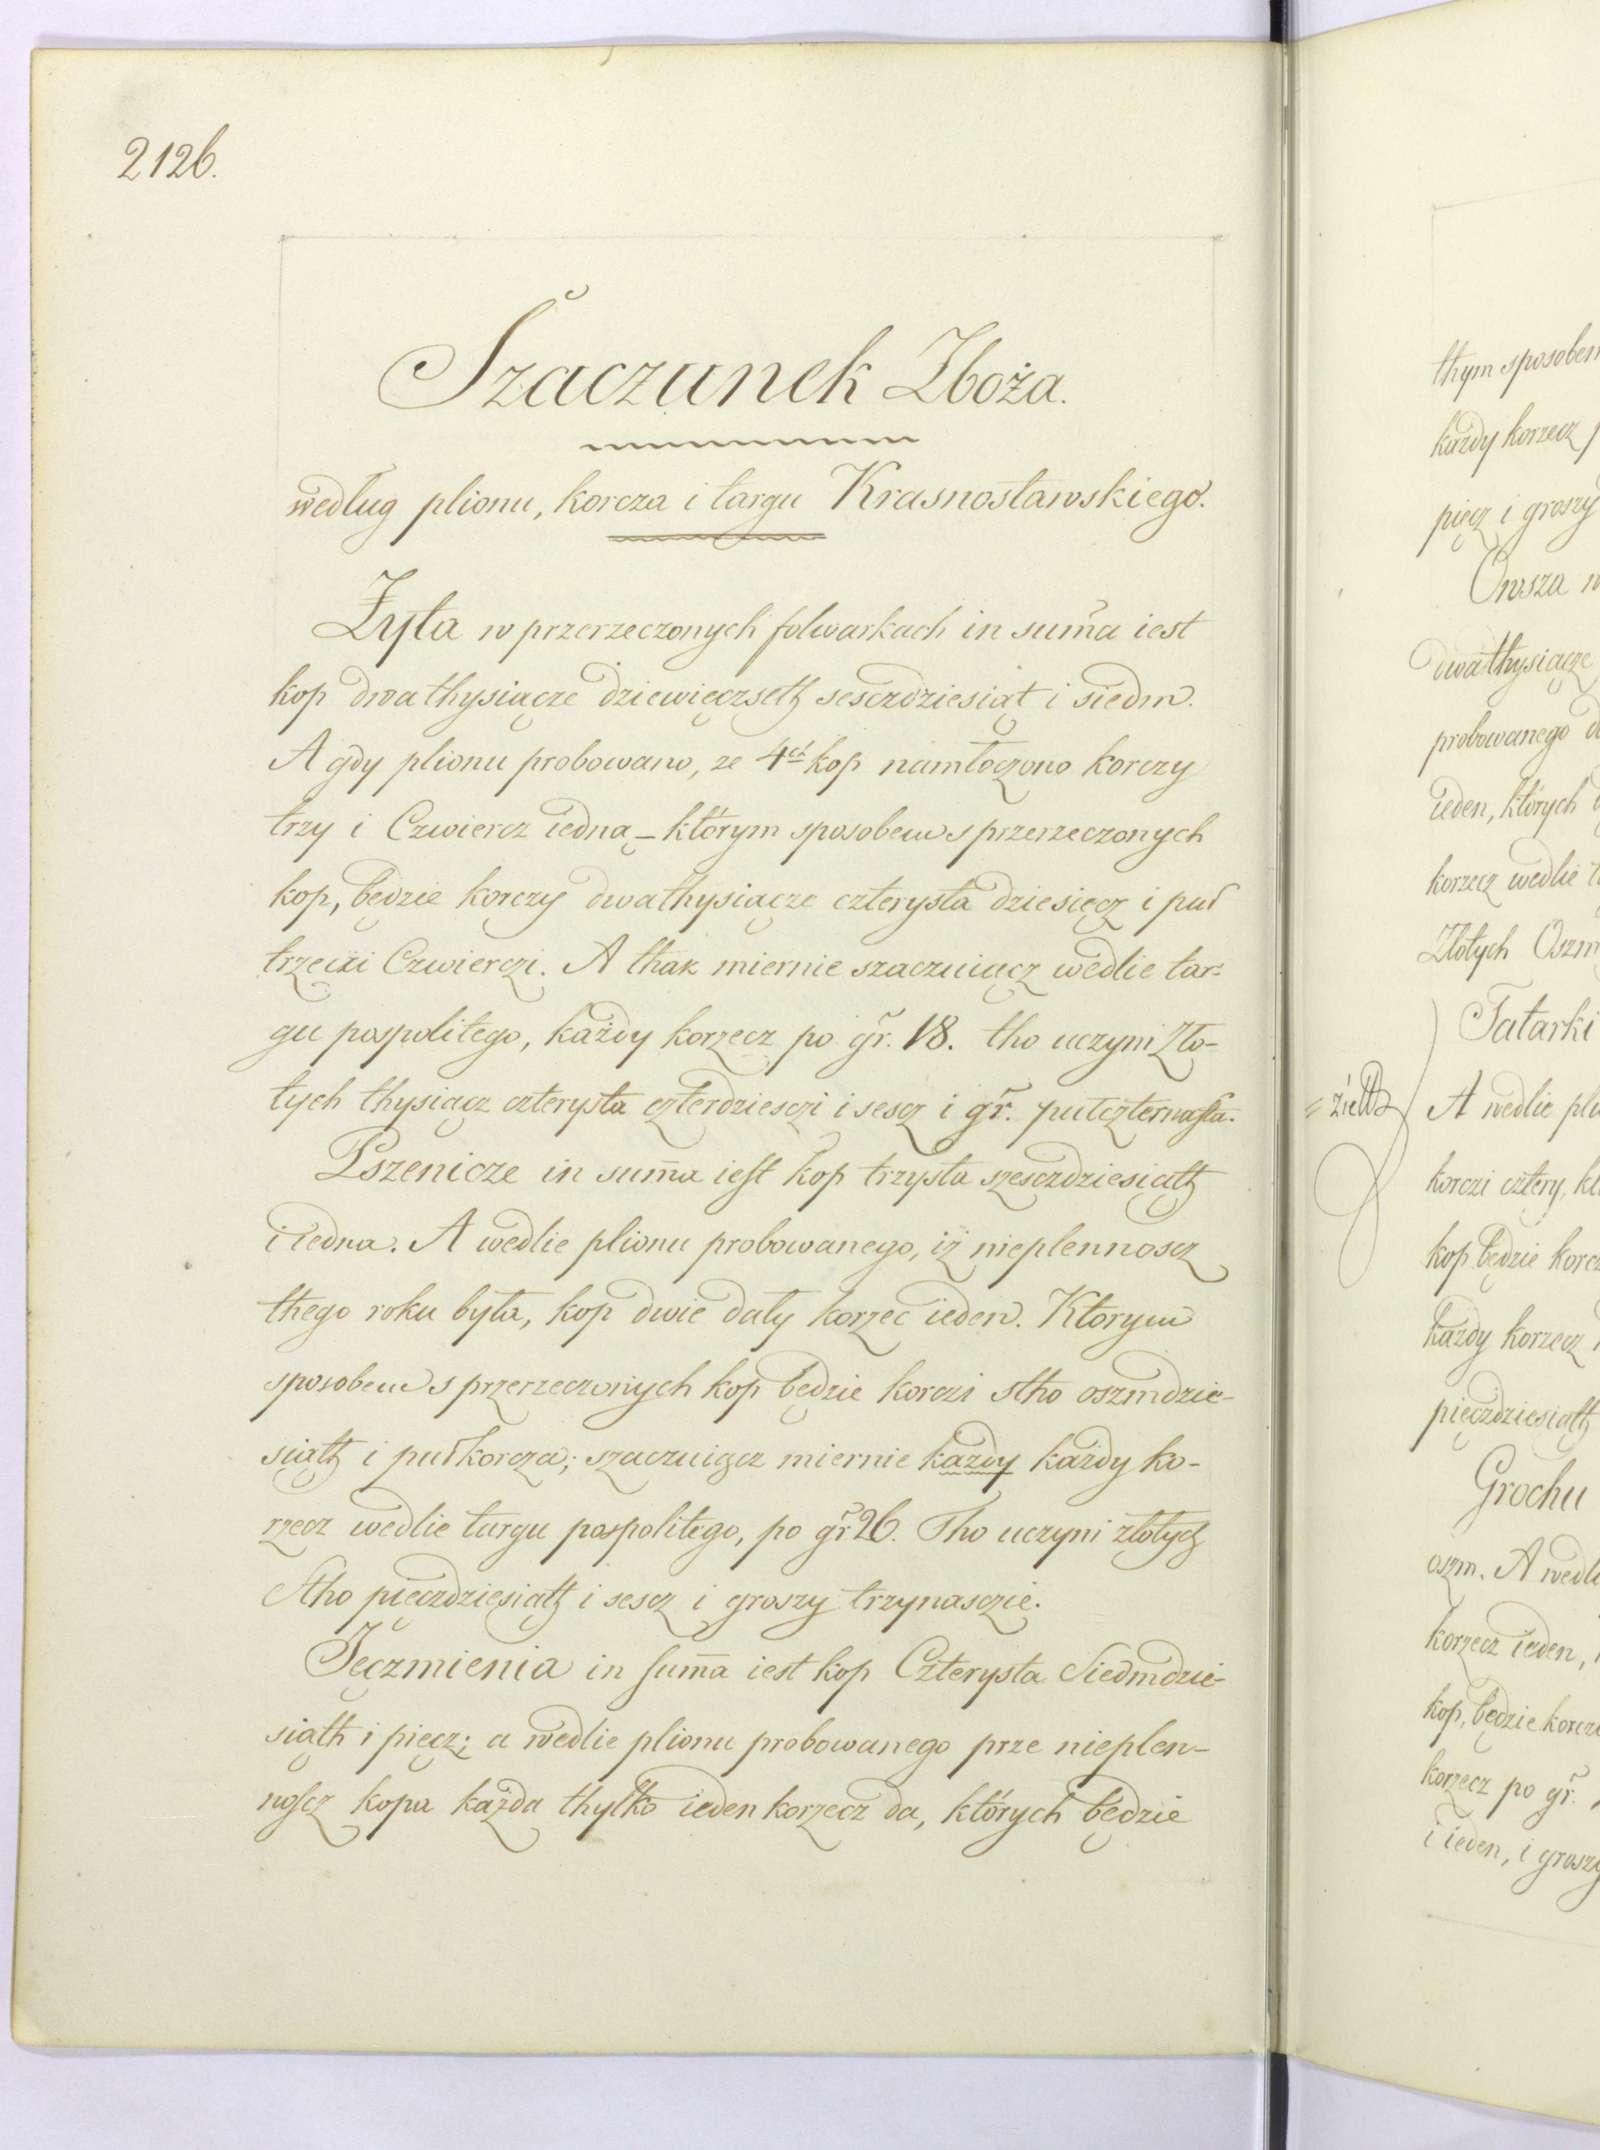 2126.
Szaczunek Zboża.
według plionu, korcza i targu Krasnostawskiego.
Żyta w przerzeczonych folwarkach in suma iest
kop dwathysiącze dziewięczseth sesczdziesiąt i siedm.
A gdy plionu probowano, ze 4ch kop namłoczono korczy
trzy i Czwiercz iedną – którym sposobem s przerzeczonych
kop, będzie korczy dwathysiącze czterysta dziesięcz i puł
trzeczi Czwierczi. A thak miernie szaczuiącz wedlie tar=
gu pospolitego, każdy korzecz po gr. 18. tho uczyni Zło-
tych thysiącz czterysta czterdziesczi i sescz i gr. pułczternasta.
Pszenicze in suma iest kop trzysta szesczdziesiąth
i iedna. A wedlie plionu probowanego, iż nieplennoscz
thego roku była, kop dwie dały korzec ieden. Ktorym
sposobem s przerzeczonych kop będzie korczi stho oszmdzie-
siąth i pułkorcza; szaczuiącz miernie każdy każdy ko-
rzecz wedlie targu pospolitego, po gr 26. Tho uczyni złotych
Stho pięczdziesiąth i sescz i groszy trzynasczie.
Jęczmienia in summa iest kop Czterysta Siedmdzie-
siąth i pięcz; a wedlie plionu probowanego prze nieplen-
noscz kopa każda thylko ieden korzecz da, których będzie
thym sposobem
każdy korzecz
pięcz i groszy
Owsza
dwathysiącze
probowanego
ieden, których
korzecz wedlie
Złotych Oszm
Tatarki
A wedlie
korczi cztery,
kop będzie
każdy korzecz
pięczdziesiąth
Grochu
oszm. A
korzecz ieden,
kop, będzie
korzecz po gr.
i ieden, i groszy